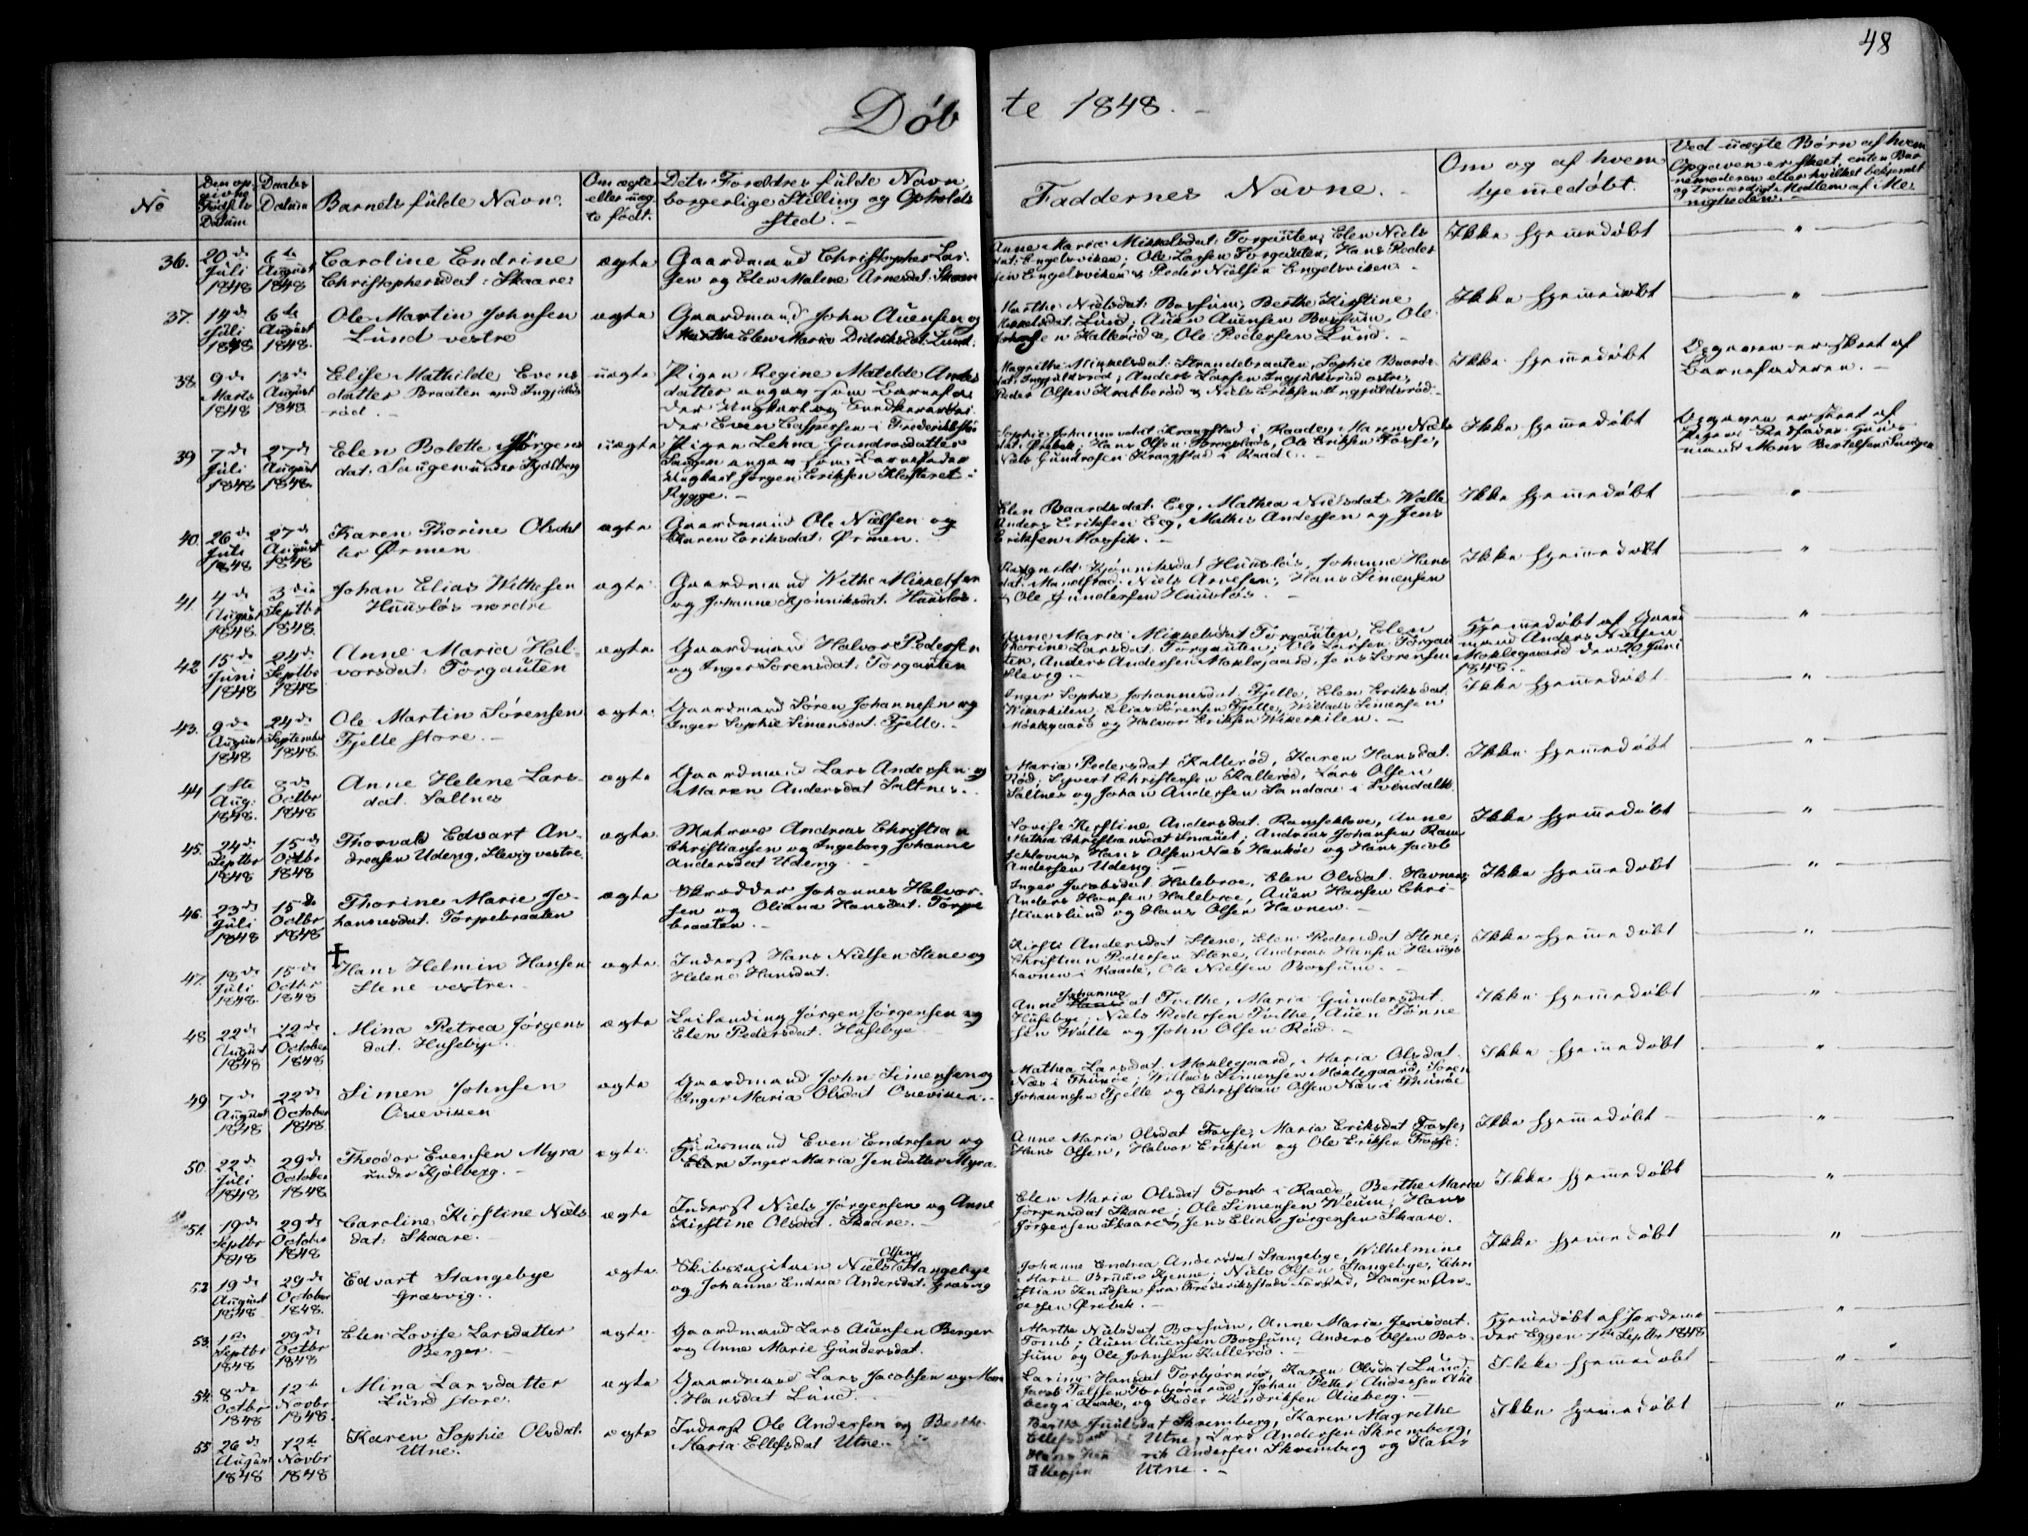 48
Døb te 1848.
No
Den op-
givne
Fødsels
Datum
Daabs
Datum
Barnets fulde Navn.
Om ægte
eller uæg-
te født.
Dets Forældres fulde Navn,
borgerlige Stilling og Opholds
sted.
Faddernes Navne.
Om og af hvem
hjemmedøbt.
Ved uægte Børn af hvem
Opgaven er skeet, enten Bar-
nemoderen eller hvilket bekjendt
og troværdigt Medlem af Me-
nigheden.
36.
20de
Juli
1848
6te
August
1848
Caroline Endrine
Christophersdat: Skaare:
ægte
Gaardmand Christopher Lar-
sen og Elen Malene Arnesdat: Skaare
Anne Maria Mikkelsdat: Torgauten, Elen Niels
dat: Engelsviken; Ole Larsen Torgauten, Hans Peder
sen Engelsviken & Peder Nielsen Engelsviken.
Ikke hjemmedøbt
"
37.
14de
Juli
1848
6te
August
1848.
Ole Martin Johnsen
Lund vestre
ægte
Gaardmand John Auensen og
Elen Maria Didriksdat: Lund.
Marthe Nielsdat: Bossum, Berthe Kirstine
Lund; Auen Auensen Bossum, Ole
Kallerød &, Ole Pedersen Lund.
Ikke hjemmedøbt
"
38.
9de
Marts
1848
13de
August
1848
Elise Mathilde Evens
datter Braaten under Ingjalds
rød.
uægte
Pigen Regine Matelde Anders
datter angav som Barnefa
der Ungkarl og
der Even Caspersen i Frederikstad
Magrethe Mikkelsdat: Strandebraaten, Sophie Baards
dat: Ingjaldsrød, Anders Larsen Ingjaldsrød østre,
Peder Olsen Krabberød & Niels Eriksen Ingjaldsrød.
Ikke hjemmedøbt
Opgaven er skeet af
Barnefaderen.
39
7de
Juli
1848
27de
August
1848.
Elen Bolette Jørgens
dat: Saugen under Kjølberg
uægte
Pigen Lehna Gundrosdatter
Saugen angav som Barnefader
Ungkarl Jørgen Eriksen Klosteret i
Rygge.
Sophie Johannesdat Kragstad i Raade, Maren Niels
dat: Ørebek; Hans Olsen, Ole Eriksen Fosse,
Niels Gundrosen Kragstad i Raade.
Ikke hjemmedøbt
Opgaven er skeet af
Pigens Stedfader Huus-
mand Mons Bertelsen Saugen
40.
26de
Juli
1848
27de
August
1848
Karen Thorine Olsdat
ter Ørmen
ægte
Gaardmand Ole Nielsen og
Karen Eriksdat: Ørmen.
Elen Baardsdat: Eeg, Mathea Nielsdat: Walle
Anders Eriksen Eeg, Mathis Andersen og Jens
Eriksen Mosvik.
Ikke hjemmedøbt
"
41.
4de
August
1848.
3die
Septbr
1848.
Johan Elias Wethesen
Huusløs nordre
ægte
Gaardmand Wethe Mikkelsen
og Johanne Kjønniksdat: Huusløs.
Ragnild Kjønniksdat Huusløs, Johanne Hans
dat: Mandstad. Niels Arnesen, Hans Simensen
& Ole Gundersen Huusløs.
Ikke hjemmedøbt
"
42
15de
Juni
1848
24de
Septbr
1848
Anne Maria Hal-
vorsdat: Torgauten
ægte
Gaardmand Halvor Pedersen
og Inger Sørensdat: Torgauten
Anne Maria Mikkelsdat Torgauten, Elen
Thorine Larsdat: Torgauten; Ole Larsen Torgau
ten, Anders Andersen Moklegaard, Jens Sørensen
Slevig.
Hjemmedøbt af Gaard
mand Anders Nielsen
Moklegaard den 29 Juni
1848.
"
43.
9de
August
1848
24de
September
1848.
Ole Martin Sørensen
Fjelle store.
ægte
Gaardmand Søren Johannesen og
Inger Sophie Simensdat: Fjelle.
Inger Sophie Johannesdat: Fjelle, Elen Eriksdat:
Wikerkilen. Elias Sørensen Fjelle, Willads Simensen
Moklegaard og Halvor Eriksen Wikerkilen.
Ikke hjemmedøbt
"
44
1ste
Aug:
1848.
8de
Octbr
1848.
Anne Helene Lars-
dat: Saltnes
ægte
Gaardmand Lars Andersen og
Maren Andersdat Saltnes.
Maria Pedersdat Kallerød, Karen Hansdat.
Rød; Syvert Christensen Kallerød, Lars Olsen
Saltnes og Johan Andersen Sandaae i Svindahl.
Ikke hjemmedøbt
"
45.
24de
Septbr
1848
15de
Octbr
1848
Thorvald Edvart An-
dreasen Udeng, Slevig vestre.
ægte
Matros Andreas Christian
Christiansen og Ingeborg Johanne
Andersdat Udeng.
Lovise Kirstine Andersdat. Ramseklove, Anne
Mathea Christiansdat Smauet; Andreas Johansen Ram
seklove, Hans Olsen Næs Hankøe og Hans Jacob
Andersen Udeng.
Ikke hjemmedøbt
"
46.
23de
Juli
1848
15de
Octbr
1848
Thorine Marie Jo-
hannesdat. Torpebraaten
ægte
Skrædder Johannes Halvor-
sen og Oliana Hansdat. Torpe
braaten.
Inger Jacobsdat. Halebroe, Elen Olsdat. Havnen;
Anders Hansen Halebroe, Auen Hansen Chri-
stianslund og Hans Olsen Havnen.
Ikke hjemmedøbt
"
47.
18de
Juli
1848.
15de
Octbr
1848
†
Hans Helmin Hansen
Stene vestre.
ægte
Inderst Hans Nielsen Stene og
Helene Hansdat.
Kirsti Andersdat Stene, Elen Pedersdat Stene;
Christian Pedersen Stene, Andreas Hansen Haugs
havnen i Raade, Ole Nielsen Bossum.
Ikke hjemmedøbt
"
48
22de
August
1848
22de
October
1848
Mina Petrea Jørgens
dat. Husebye.
ægte
Leilending Jørgen Jørgensen og
Elen Pedersdat. Husebye
Anne Johannesdat Tvethe, Maria Gundersdat.
Husebye, Niels Pedersen Tvethe, Auen Tønne
sen Walle og John Olsen Rød.
Ikke hjemmedøbt
"
49
7de
August
1848
22de
October
1848
Simen Johnsen
Oseviken
ægte
Gaardmand John Simensen og
Inger Maria Olsdat Oseviken.
Mathea Larsdat. Moklegaard, Maria Olsdat.
Næs i Thunøe; Willads Simensen Moklegaard, Søren
Johannesen Fjelle og Christian Olsen Næs i Thunøe
Ikke hjemmedøbt
"
50
22de
Juli
1848
29de
October
1848.
Theodor Evensen Myra
under Kjølberg.
ægte
Huusmand Even Endresen og
Inger Maria Jensdatter Myra.
Anne Maria Olsdat Fosse, Maria Eriksdat Fosse;
Hans Olsen, Halvor Eriksen og Ole Eriksen Fosse:
Ikke hjemmedøbt
"
51.
19de
Septbr
1848
29de
October
1848
Caroline Kirstine Niels
dat: Skaare.
ægte
Inderst Niels Jørgensen og Anne
Kirstine Olsdat. Skaare.
Elen Maria Olsdat Tomb i Raade, Berthe Maria
Jørgensdat Skaare; Ole Simensen Weum, Hans
Jørgensen Skaare & Jens Elias Jørgensen Skaare.
Ikke hjemmedøbt
"
52
19de
August
1848
29de
October
1848.
Edvart Stangebye
Græsvig.
ægte
Skibscapitain Niels Olsen Stangebye
og Johanne Endrea Andersdat. Græsvig
Johanne Endrea Andersdat Stangebye, Wilhelmine
Marie Bruun Kjenne; Niels Olsen Stangebye, Chri
stian Knudsen fra Frederiksstads Forstad, Haagen An-
dersen Ørebek.
Ikke hjemmedøbt
"
53.
1ste
Septbr
1848
29de
Octbr
1848
Elen Lovise Larsdatter
Berger.
ægte
Gaardmand Lars Auensen Berger
og Anne Marie Gundersdat.
Marthe Nielsdat Bossum, Anne Maria Jensdat.
Tomb; Auen Auensen Bossum; Anders Olsen Bos-
sum og Ole Johnsen Kallerød.
Hjemmedøbt af Jordemo
der Eggen 1ste Septbr 1848
"
54.
8de
Octbr
1848
12te
Novbr
1848.
Mina Larsdatter
Lund store.
ægte
Gaardmand Lars Jacobsen og
Hansdat Lund.
Larine Hansdat Torbjørnrød, Karen Olsdat Lund;
Jacob Torbjørnrød, Johan Petter Andersen Aue
berg i Raade, og Peder Hendriksen Aueberg.
Ikke hjemmedøbt
"
55
26de
August
1848
12te
Novbr
1848
Karen Sophie Olsdat.
Utne.
ægte
Inderst Ole Andersen og Berthe
Maria Ellefsdat Utne.
Berthe Juulsdat Skremberg, Karen Magrethe
Ellefsdat Utne; Lars Andersen Skremberg,
Hans Hen rik Andersen Skremberg og Hans
Ellefsen Utne.
Ikke hjemmedøbt
"